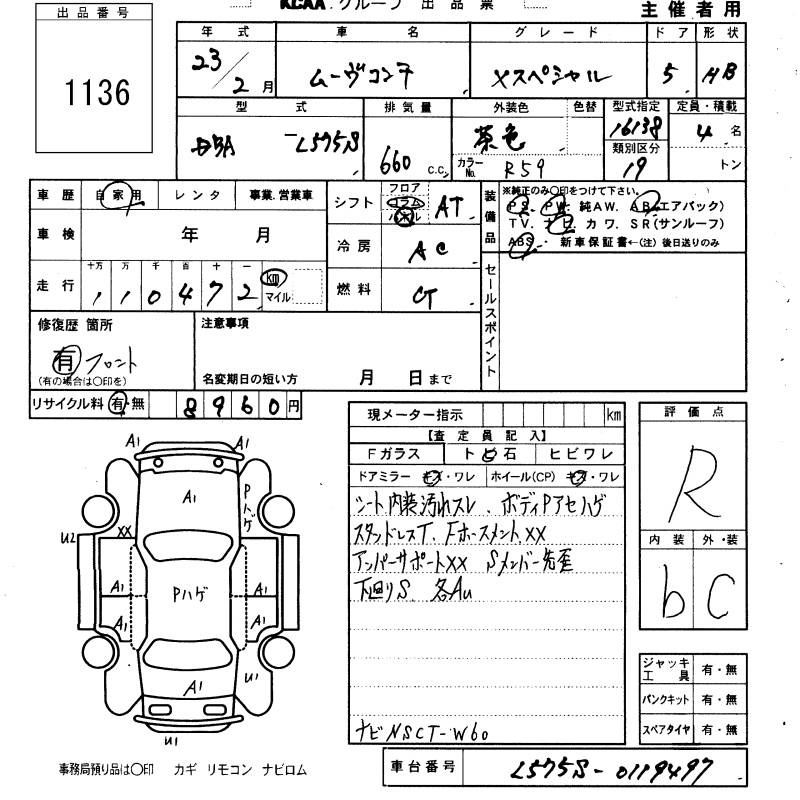 KCAA.グループ 出品票
主催者用
出品番号
1136
年式 車名 グレード ドア 形状
23/2月 ムーヴコンテ Xスペシャル 5 HB
型式 排気量 外装色 色替 型式指定 定員・積載
DBA-L575S 660 C.C. 茶色 16138 4名
カラーNo. R59 類別区分 19 トン
車歴 自家用 レンタ 事業.営業車
シフト フロア コラム AT
装備品 ※純正のみ〇印をつけて下さい。
PS. PW. 純AW. AB(エアバック)
TV. ナビ. カワ. SR(サンルーフ)
ABS. 新車保証書←(注)後日送りのみ
車検 年 月
冷房 AC
走行 十万 万 千 百 十 一
1 1 0 4 7 2 km マイル
燃料 CT
セールスポイント
修復歴 箇所
有 フロント
(有の場合は〇印を)
注意事項
名変期日の短い方 月 日まで
リサイクル料 有・無 8960円
現メーター指示 km
【査定員記入】
Fガラス トビ石 ヒビワレ
ドアミラー キズ・ワレ ホイール(CP) キズ・ワレ
シート内装汚れスレ、ボディPアセハゲ
スタンドレスT. Fホースメント.XX
アンパーサポートXX Sメンバー先歪
下廻りS. 各AU
ナビNSCT-W60
評価点
R
内装 外・装
b C
ジャッキ工具 有・無
パンクキット 有・無
スペアタイヤ 有・無
A1 A1
A1 Pハゲ
U2 XX
A1 Pハゲ A1
A1 A1
A1 U1
U1
事務局預り品は〇印 カギ リモコン ナビロム
車台番号 L575S-0119497